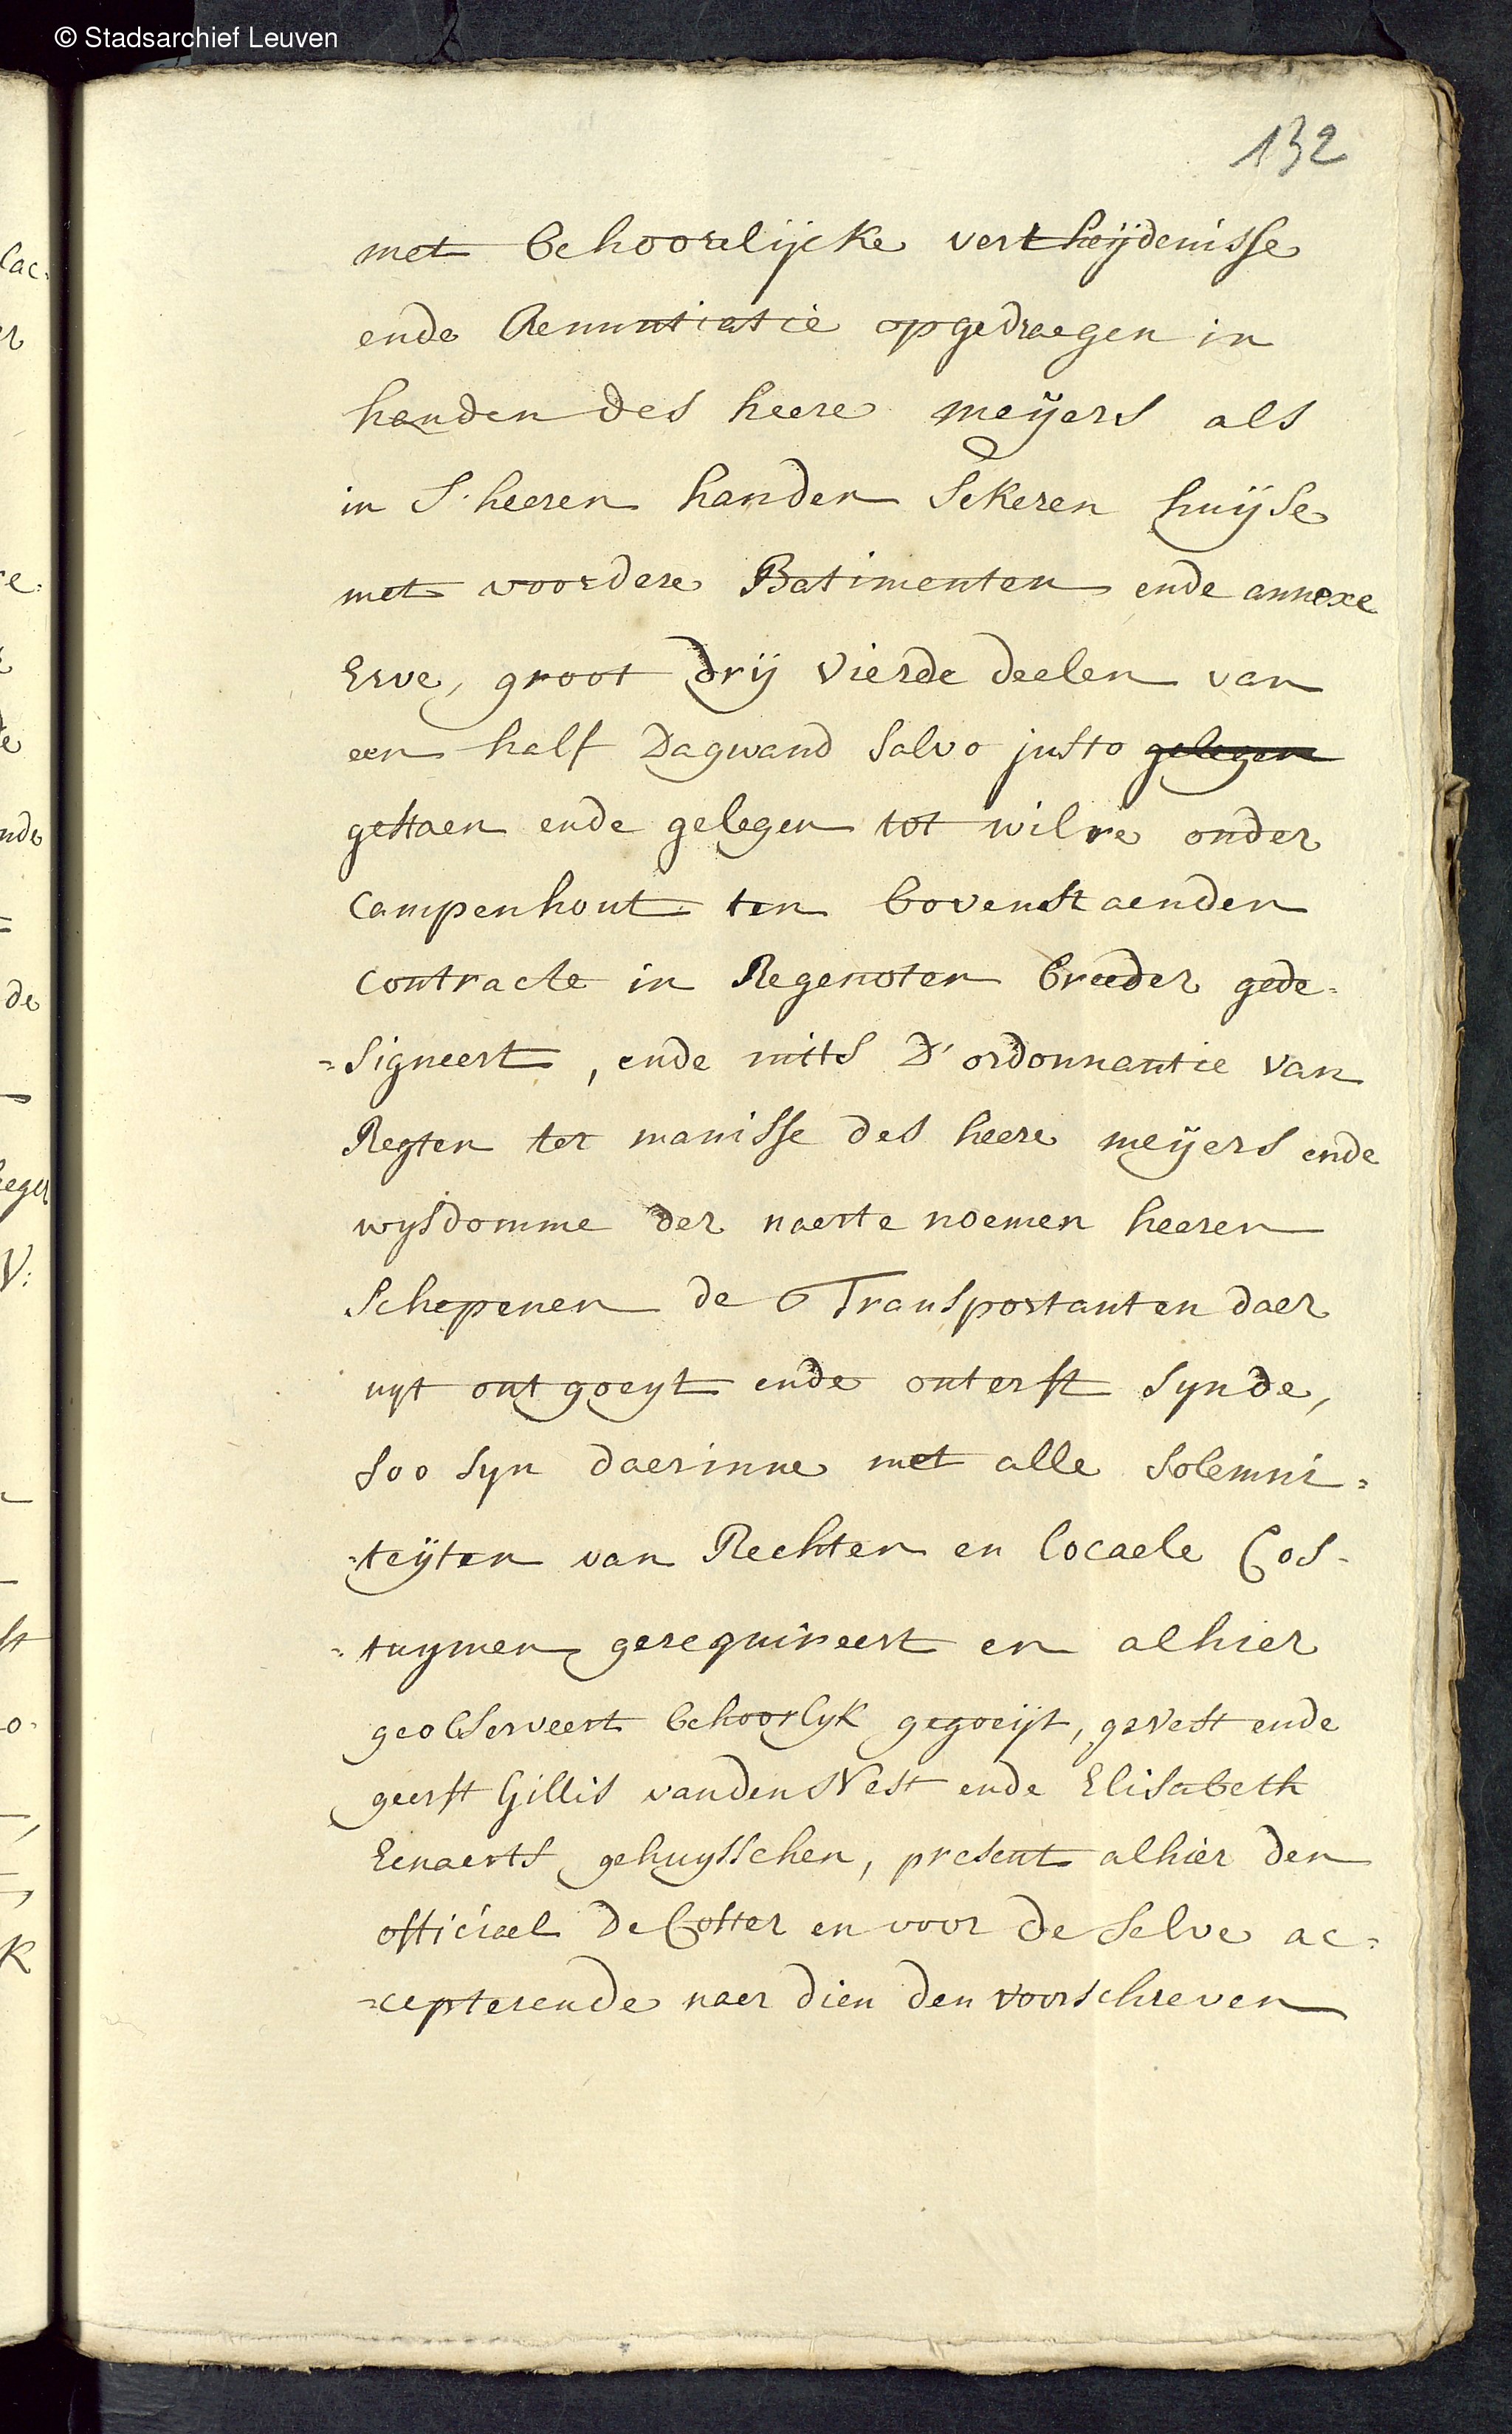 © Stadsarchief Leuven
132
met behoorelijcke vertheijdenisse
ende Renuntiatie opgedraegen in
handen des heere meijers als
in S'heeren handen sekeren huijse
met voordere Batimenten ende annexe
Erve, groot drij vierde deelen van
een half Dagwand salvo justo gelegen
gestaen ende gelegen tot wilre onder
Campenhout ten bovenstaenden
contracte in Regenoten breeder gede=
=signeert, ende mits D'ordonnantie van
Regten ter manisse des heere meijers ende
wysdomme der naerte noemen heeren
Schepenen de Transportanten daer
uyt ontgoeyt ende onterft synde,
soo syn daerinne met alle solemni=
=teijten van Rechten en locaele Cos=
=tuymen gerequireert en alhier
geobserveert behoorlyk gegoeijt, gevest ende
geerft Gillis vanden Nest ende Elisabeth
Eenaerts gehuysschen, present alhier den
officiael De Coster en voor de selve ac=
=cepterende naer dien den voorschreven
lac=
er
re.
de
nde
de
V:
st
o.
K